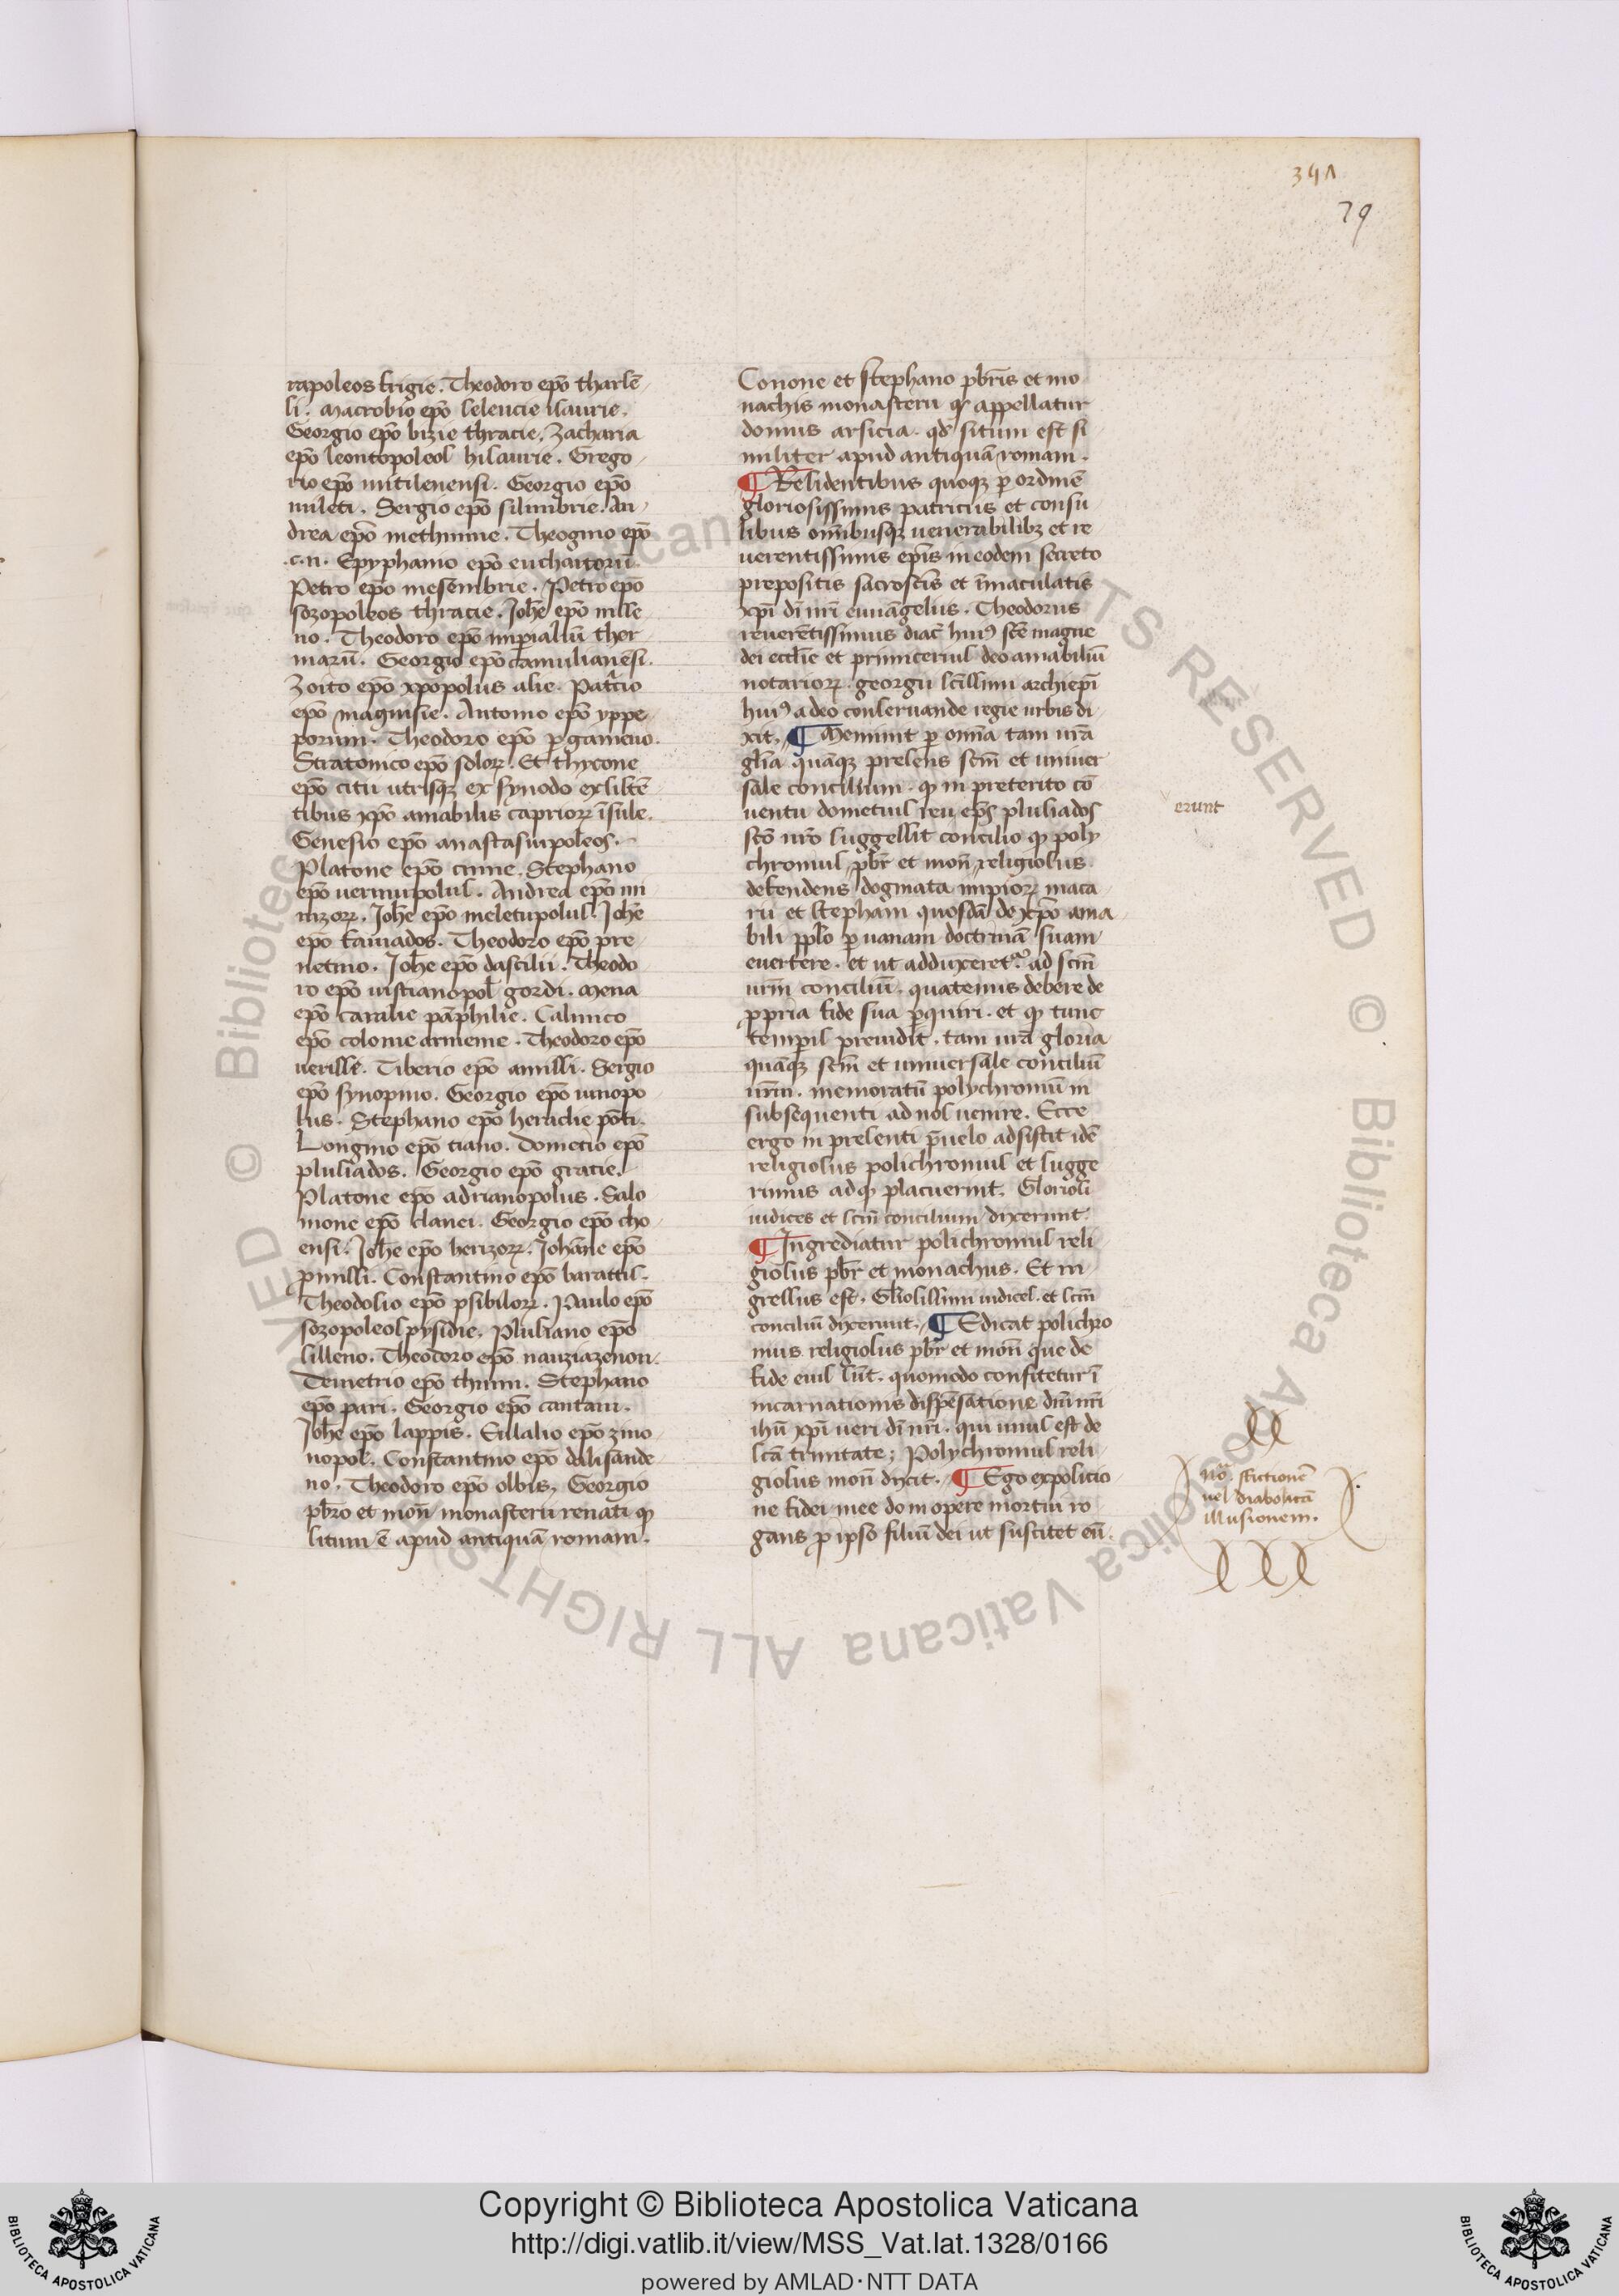 341
79
rapoleos frigie. Theodoro ep̄o tharsē
si. Macrobio ep̄o seleucie isaurie.
Georgio ep̄o bizie thracie. Zacharia
ep̄o leontopoleos hisaurie. Grego
rio ep̄o mitilenensi. Georgio ep̄o
mileti. Sergio ep̄o silimbrie. An
drea ep̄o methimne. Theogino ep̄o
.c.n. Epyphanio ep̄o euchaitorū.
Petro ep̄o mesembrie. Petro ep̄o
sozopoleos thracie. Joh̄e ep̄o nisse
no. Theodoro ep̄o imꝑialiū ther
marū. Georgio ep̄o camulianēsi.
Zoito ep̄o xp̄opolus asie. Patricio
ep̄o magnisie. Antonio ep̄o yppe
porum. Theodoro ep̄o ꝑgameno.
Stratonico ep̄o solorꝝ. Et thyxone
ep̄o citu utrisqꝫ ex synodo existē
tibus xp̄o amabilis capriorꝝ īsule.
Genesio ep̄o anastasiupoleos.
Platone ep̄o cinne. Stephano
ep̄o uerinupolus. Andrea ep̄o mi
nizorꝝ. Joh̄e ep̄o meletupolus. Joh̄e
ep̄o famados. Theodoro ep̄o pre
netino. Joh̄e ep̄o dascilii. Theodo
ro ep̄o iustianopol̄ gordi. Mena
ep̄o caralie pāphilie. Calinico
ep̄o colonie armenie. Theodoro ep̄o
uerisse. Tiberio ep̄o amissi. Sergio
ep̄o synopino. Georgio ep̄o iunopo
lus. Stephano ep̄o heraclie pōti.
Longino ep̄o tiano. Dometio ep̄o
plusiados. Georgio ep̄o gratie.
Platone ep̄o adrianopolus. Salo
mone ep̄o clanei. Georgio ep̄o cho
ensi. Joh̄e ep̄o herizorꝝ. Johāne ep̄o
ꝑmissi. Constantino ep̄o barattis.
Theodosio ep̄o psibilorꝝ. Paulo ep̄o
sozopoleos pysidie. Plusiano ep̄o
silleno. Theodoro ep̄o nauziazenon.
Demetrio ep̄o thinn. Stephano
ep̄o pari. Georgio ep̄o cantani.
Joh̄e ep̄o lappis. Eulalio ep̄o zino
nopol̄. Constantino ep̄o dalisande
no. Theodoro ep̄o olbis. Georgio
pb̄ro et mon̄ monasterii renati qꝫ
situm ē apud antiquā romam.
Conone et stephano pb̄ris et mo
nachis monasterii qꝫ appellatur
domus arsicia. qd̄ situm est si
militer apud antiquā romam.
¶ Residentibus quoqꝫ ꝑ ordinē
gloriosissimis patriciis et consu
libus omībusqꝫ uenerabilibꝫ et re
uerentissimis ep̄is in eodem secreto
prepositis sacrosc̄is et īmaculatis
xp̄i dn̄i nr̄i euuāgeliis. Theodorus
reuerētissimus diac̄ huiꝰ sc̄e magne
dei eccl̄ie et primicerius deo amabiliū
notariorꝝ. georgii sc̄issimi archiep̄i
huiꝰ a deo conseruande regie urbis di
xit. ¶ Meminit ꝑ omnia tam ur̄a
gl̄ia quāqꝫ presens sc̄m et uniuer
sale concilium. qꝫ in preterito cō
uentu dometius reu ep̄s plusiados
sc̄o ur̄o suggessit concilio qꝫ poly
chromus pb̄r et mon̄ religiosus
defendens dogmata impiorꝝ maca
rii et stephani quosdā de xp̄o ama
bili pp̄lo ꝑ uanam doctrinā suam
euertere. et ut adduxeret ad sc̄m
ur̄m conciliū. quatenus debere de
propria fide sua ꝑquiri. et qꝫ tunc
temꝑis preuidit. tam ur̄a gloria
quāqꝫ sc̄m et uniuersale conciliū
ur̄m. memoratū polychromū in
subsequenti ad nos uenire. Ecce
ergo in presenti p̄uelo adsistit idē
religiosus polichromus et sugge
rimus ad qꝫ placuerint. Gloriosi
iudices et sc̄m concilium dixerunt.
¶ Ingrediatur polichromus reli
giosus pb̄r et monachus. Et in
gressus est. Gl̄iosissimi iudices. et sc̄m
conciliū dixerunt. ¶ Edicat polichro
mus religiosus pb̄r et mon̄ que de
fide eius sūt. quomodo confitetur ī
incarnationis dispēsatione dn̄i nr̄i
ihū xp̄i ueri dī nr̄i. qui unus est de
sc̄a trinitate; Polychromus reli
giosus mon̄ dixit. ¶ Ego expositio
ne fidei mee dom opere mortui ro
gans ꝓ ipso filiū dei ut suscitet eū.
erunt
nō. ffictionē
uel diabolicā
illusionem.
© Biblioteca Apostolica Vaticana ALL RIGHTS RESERVED
Copyright © Biblioteca Apostolica Vaticana
http://digi.vatlib.it/view/MSS_Vat.lat.1328/0166
powered by AMLAD·NTT DATA
BIBLIOTECA APOSTOLICA VATICANA
BIBLIOTECA APOSTOLICA VATICANA